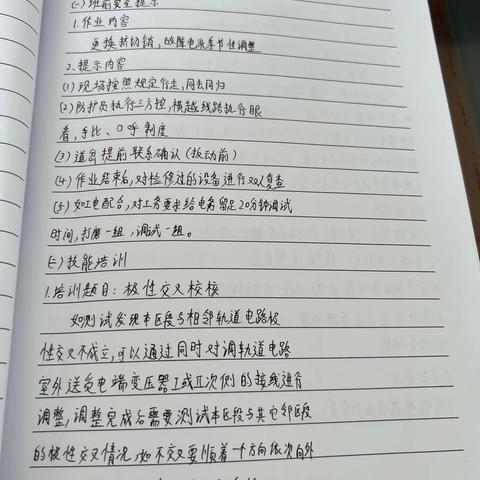 (一)班前安全提示
1.作业内容
更换挤切销,故障电流季节性调整
2.提示内容
(1)现场按照规定行走,同去同归
(2)防护员执行三方控,横越线路执行眼
看,手比、口呼制度
(3)道岔提前联系确认(扳动前)
(4)作业结束后,对检修过的设备进行双人复查
(5)如工电配合,对工务要求给电务留足20分钟调试
时间,打磨一组,调试一组。
(二)技能培训
1.培训题目:极性交叉校核
如测试发现本区段与相邻轨道电路极
性交叉不成立,可以通过同时对调轨道电路
室外送受电端变压器Ⅰ或Ⅱ次侧的接线进行
调整,调整完成后需要测试本区段与其它邻区段
的极性交叉情况,如不交叉要顺着一个方向依次向外